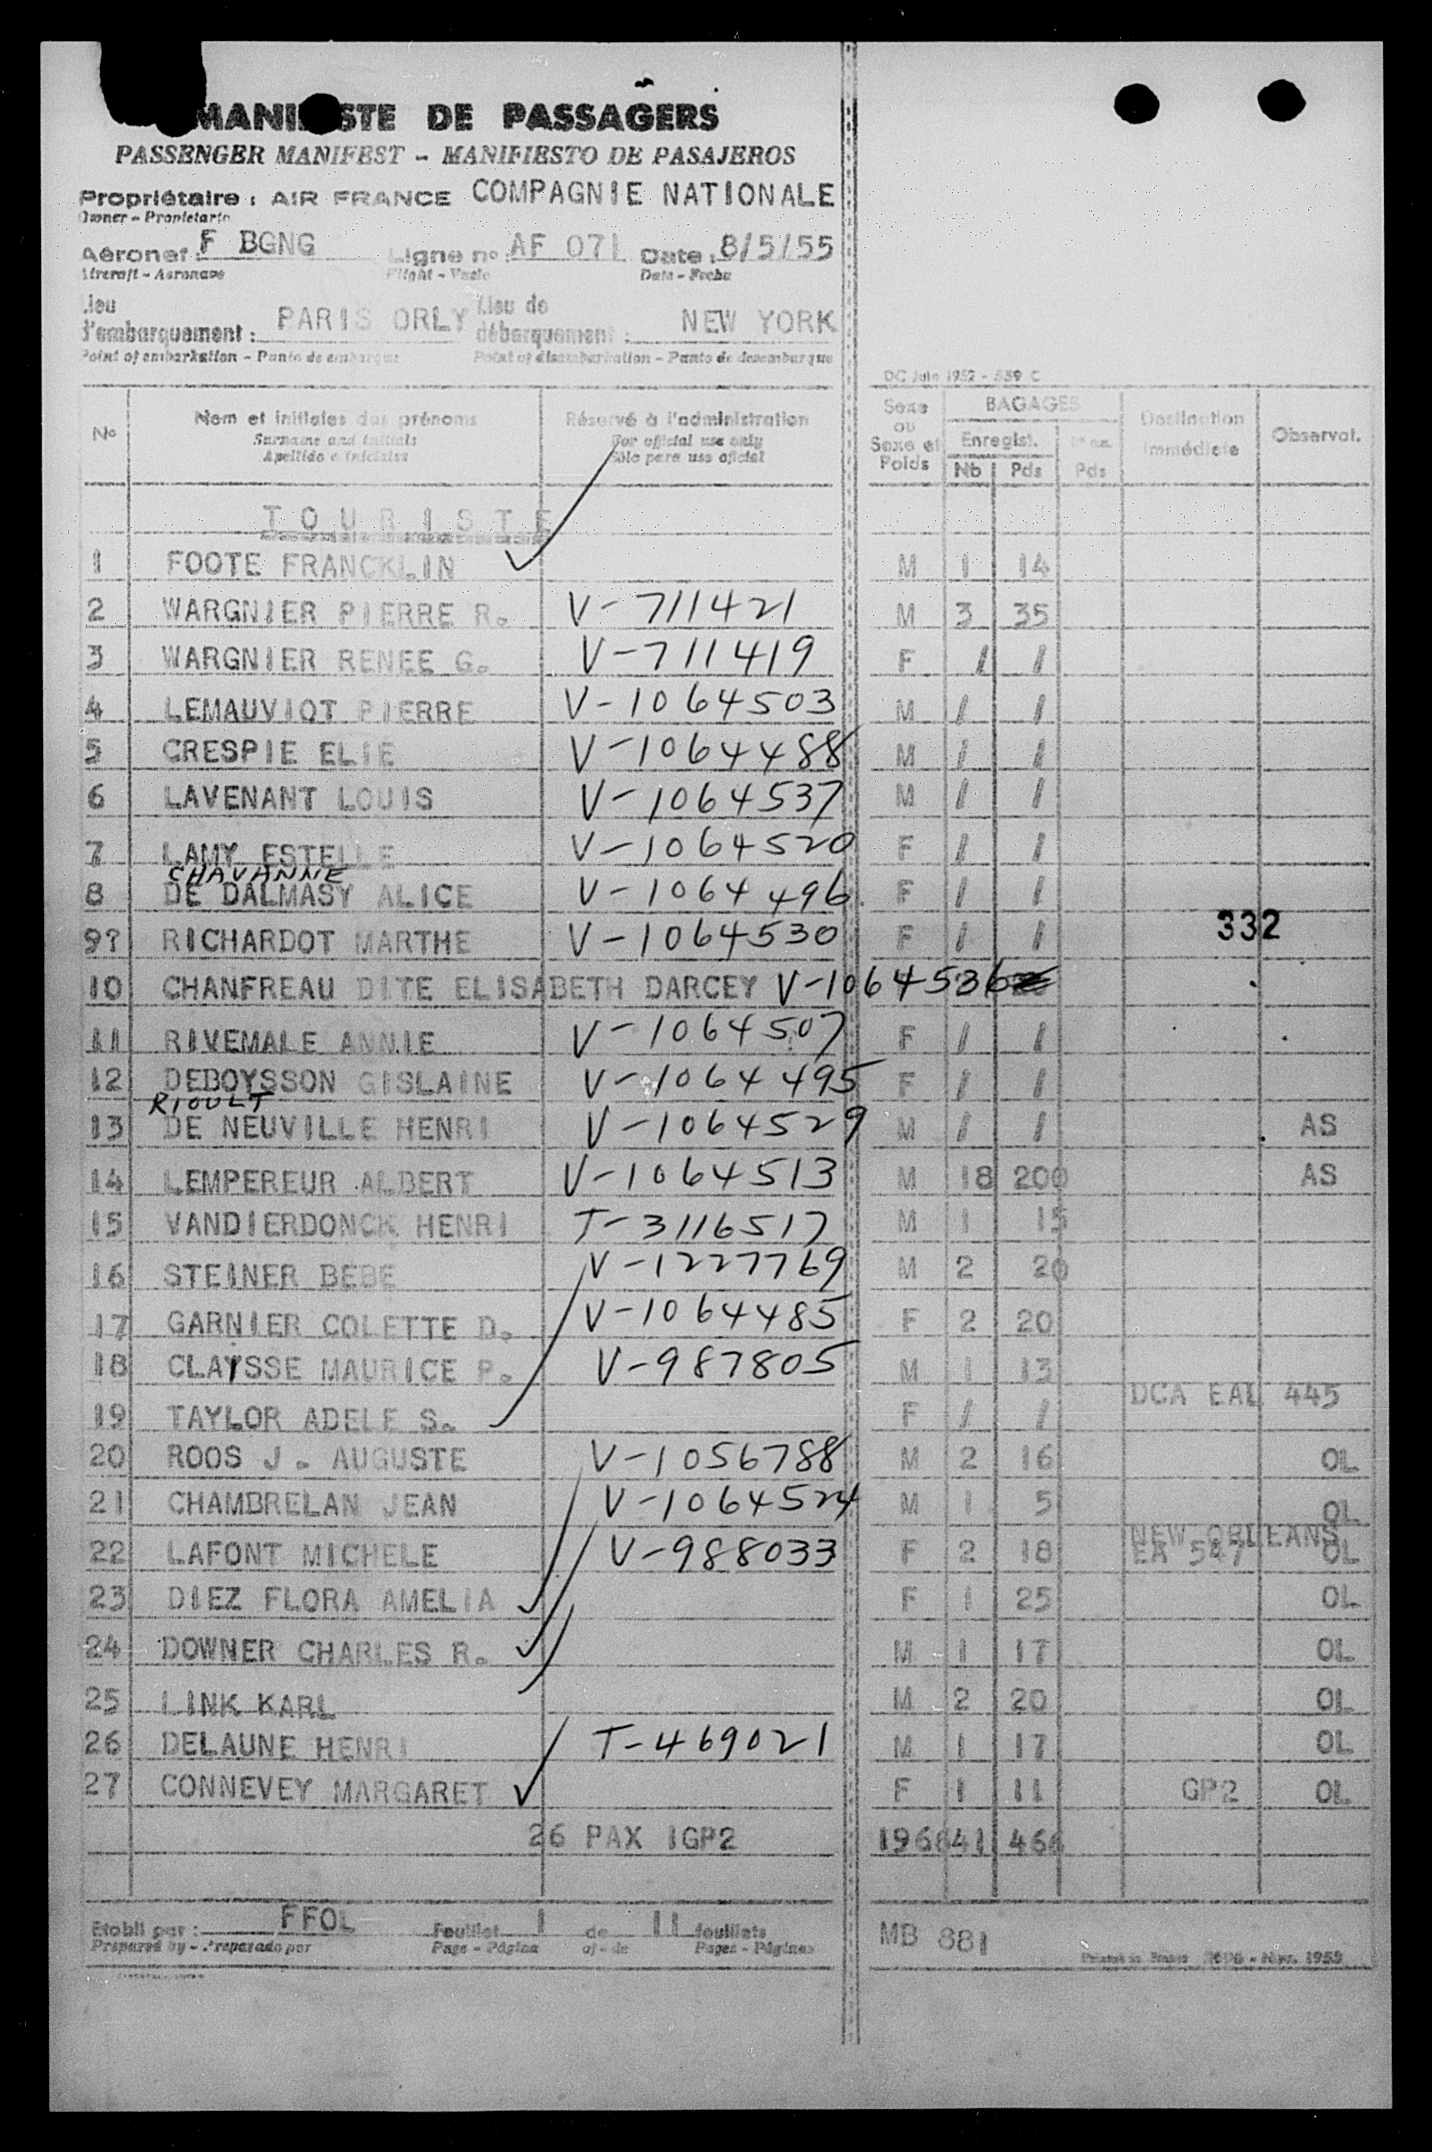 MANIFESTE DE PASSAGERS
PASSENGER MANIFEST - MANIFIESTO DE PASAJEROS
Propriétaire : AIR FRANCE COMPAGNIE NATIONALE
Owner - Propietario
Aéronef : F BGNG Ligne nº : AF 071 Date : 8/5/55
Aircraft - Aeronave Flight - Vuelo Date - Fecha
Lieu d'embarquement : PARIS ORLY Lieu de débarquement : NEW YORK
Point of embarkation - Punto de embarque Point of disembarkation - Punto de desembarque
DC Juin 1952 - 539 C
Nº Nom et initiales des prénoms Réservé à l'administration Sexe ou Sexe et Poids BAGAGES Destination immédiate Observat.
Surname and initials For official use only Enregist. Pds
Apellido e iniciales Sólo para uso oficial Nb Pds
TOURISTE
1 FOOTE FRANCKLIN M 1 14
2 WARGNIER PIERRE R. V-711421 M 3 35
3 WARGNIER RENEE G. V-711419 F / /
4 LEMAUVIOT PIERRE V-1064503 M / /
5 CRESPIE ELIE V-1064488 M / /
6 LAVENANT LOUIS V-1064537 M / /
7 LAMY ESTELLE V-1064520 F / /
CHAVANNE
8 DE DALMASY ALICE V-1064496 F / /
332
9? RICHARDOT MARTHE V-1064530 F / /
10 CHANFREAU DITE ELISABETH DARCEY V-1064536
11 RIVEMALE ANNIE V-1064507 F / /
12 DEBOYSSON GISLAINE V-1064495 F / /
RIOULT
13 DE NEUVILLE HENRI V-1064529 M / / AS
14 LEMPEREUR ALBERT V-1064513 M 18 200 AS
15 VANDIERDONCK HENRI T-3116517 M 1 15
16 STEINER BEBE V-1227769 M 2 20
17 GARNIER COLETTE D. V-1064485 F 2 20
18 CLAYSSE MAURICE P. V-987805 M 1 13
DCA EAL 445
19 TAYLOR ADELE S. F / /
20 ROOS J. AUGUSTE V-1056788 M 2 16 OL
21 CHAMBRELAN JEAN V-1064524 M 1 5 OL
NEW ORLEANS
22 LAFONT MICHELE V-988033 F 2 18 EA 547 OL
23 DIEZ FLORA AMELIA F 1 25 OL
24 DOWNER CHARLES R. M 1 17 OL
25 LINK KARL M 2 20 OL
26 DELAUNE HENRI T-469021 M 1 17 OL
27 CONNEVEY MARGARET F 1 11 GP2 OL
26 PAX 1GP2 1966 41 466
Etabli par : FFOL Feuillet 1 de 11 feuillets MB 881
Prepared by - Preparado por Page - Página of - de Pages - Páginas